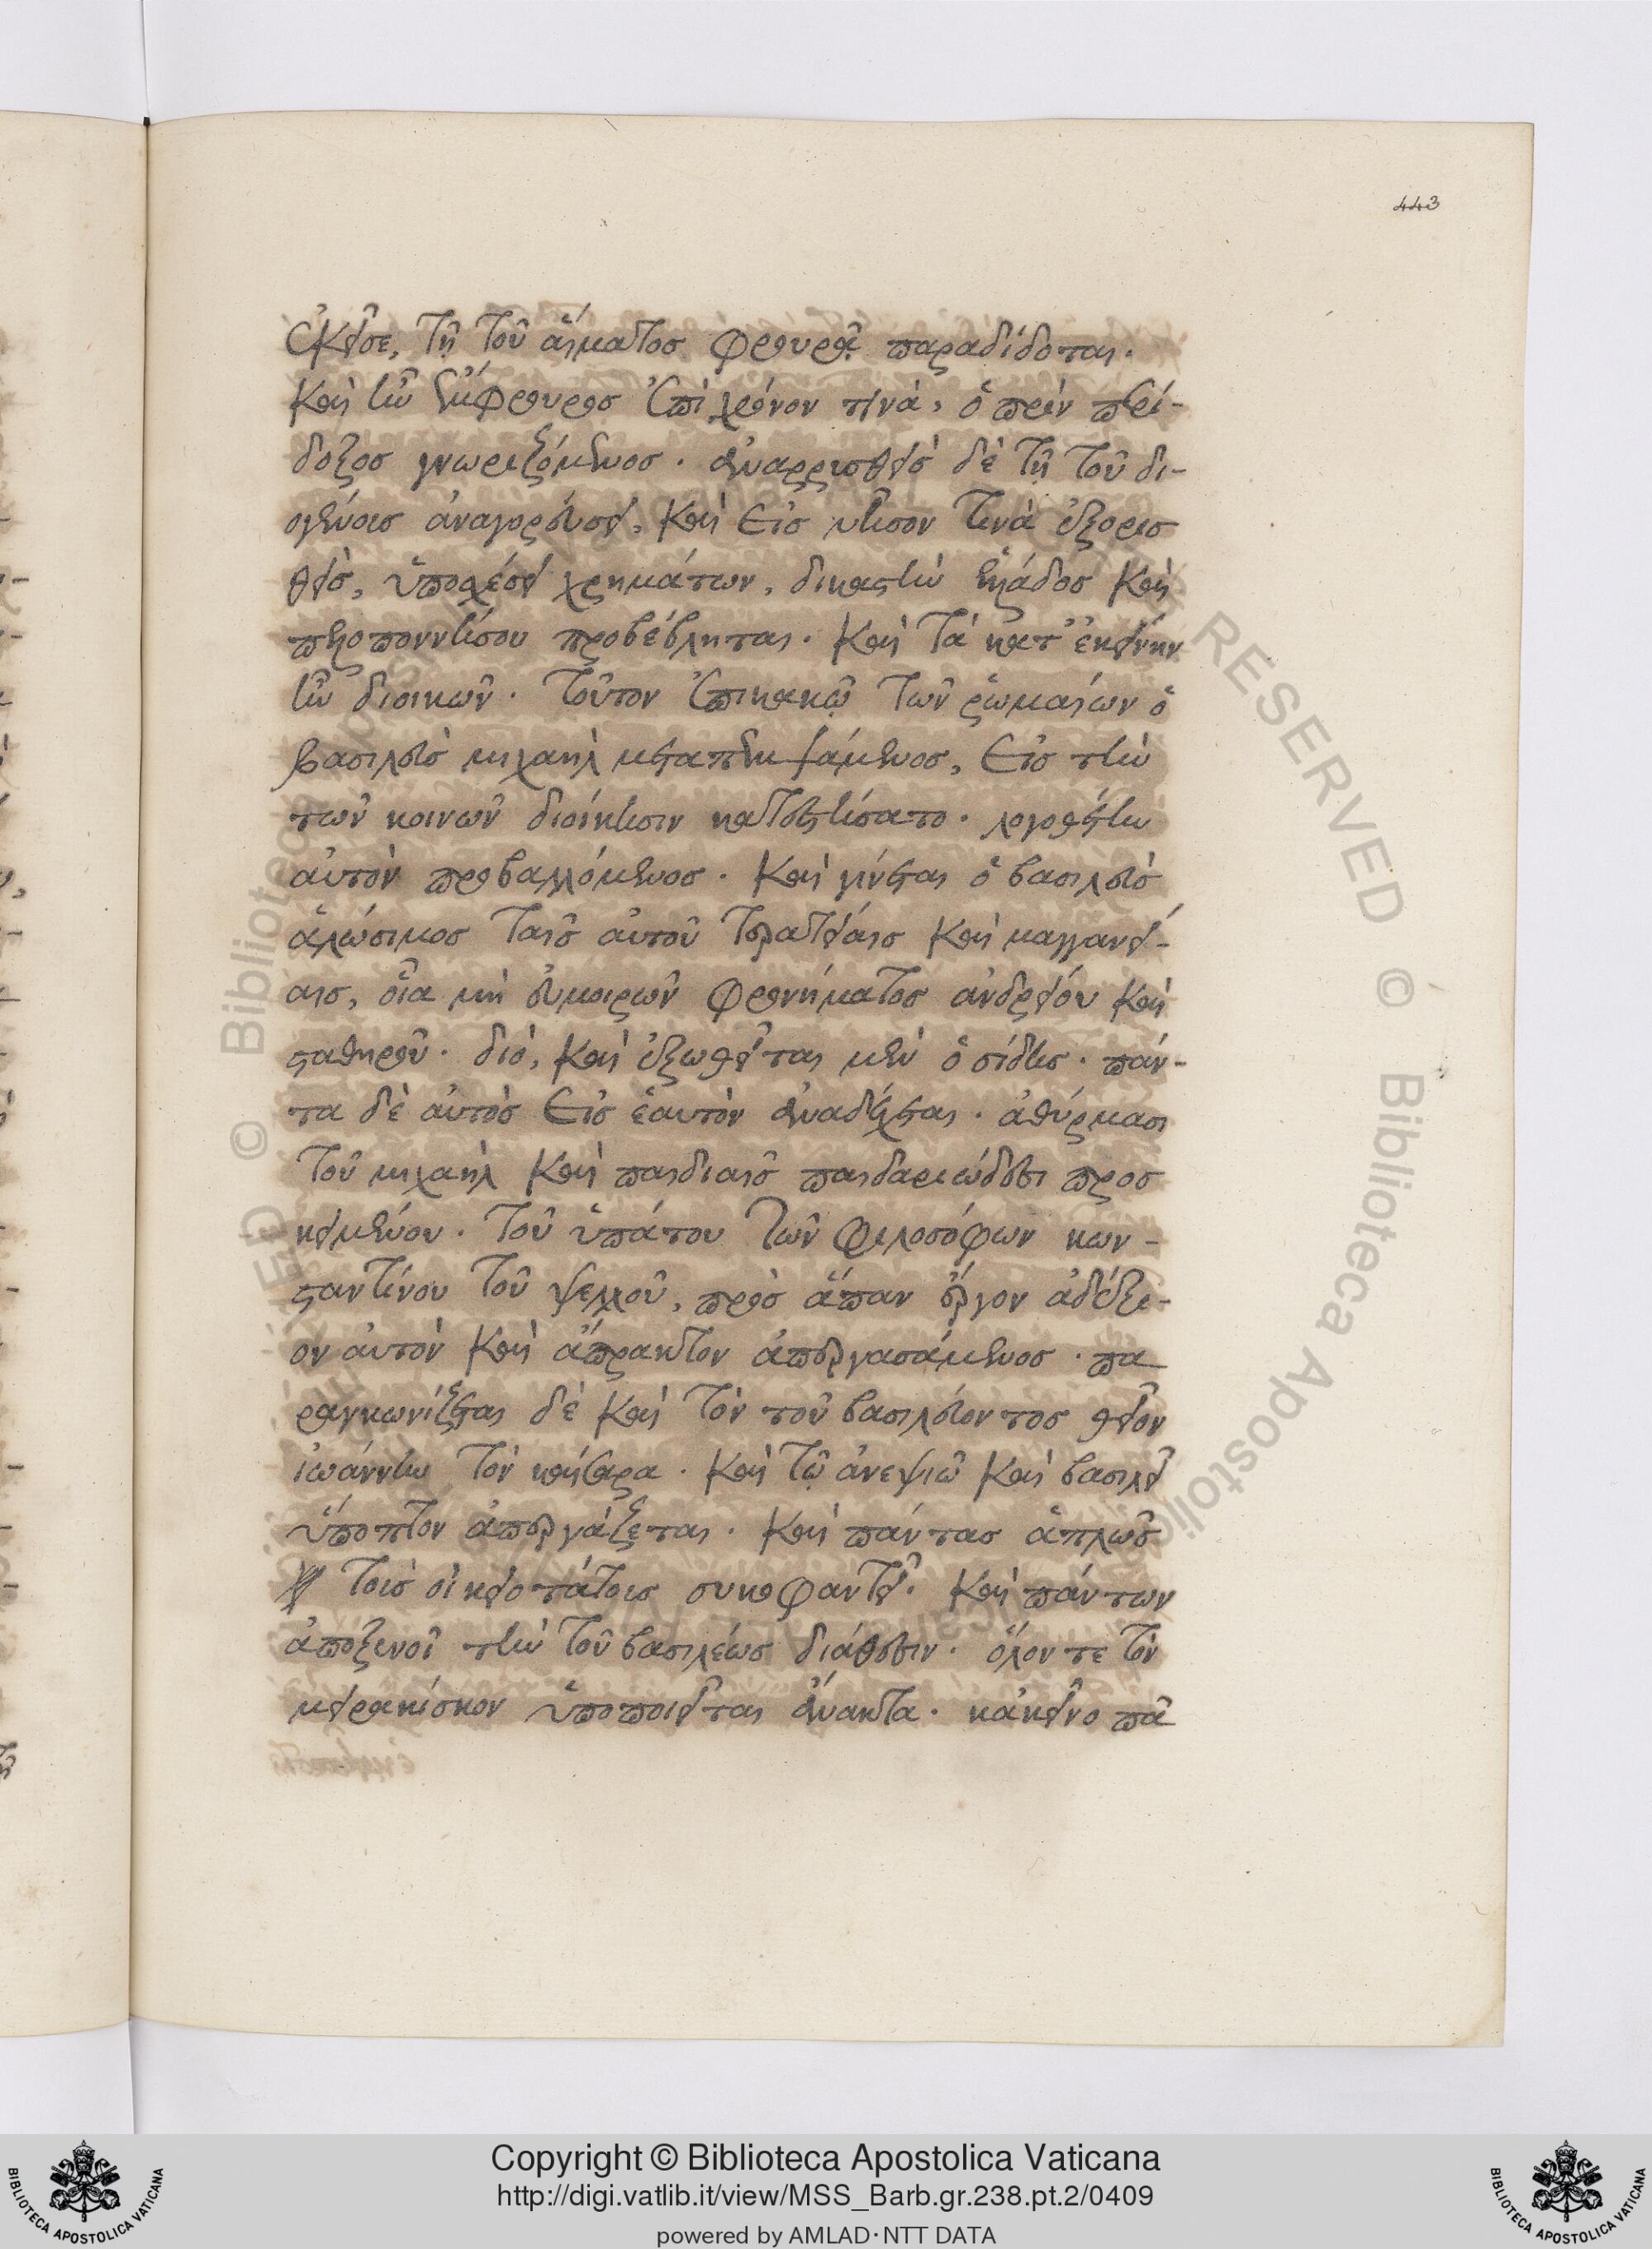 443
ἐκεῖσε, τῇ τοῦ αἵματος φρουρᾷ παραδίδοται.
καὶ ἦν ἔμφρουρος ἐπὶ χρόνον τινὰ, ὁ πρὶν περί-
δοξος γνωριζόμενος. ἀναρρισθεὶς δὲ τῇ τοῦ δι-
ογένοις ἀναγορεύσει, καὶ εἰς νῆσον τινὰ ἐξορισ
θεὶς, ὑποσχέσει χρημάτων, δικαστὴς ἑλλάδος καὶ
πελοποννήσου προβέβληται. καὶ τὰ κατ' ἐκείνην
ἦν διοικῶν. τοῦτον ἐπικακῷ τῶν ῥωμαίων ὁ
βασιλεὺς μιχαὴλ μεταπεμψάμενος, εἰς τὴν
τῶν κοινῶν διοίκησιν κατεστήσατο. λογοθέτην
αὐτὸν προβαλλόμενος. καὶ γίνεται ὁ βασιλεὺς
ἁλώσιμος ταῖς αὐτοῦ τερατείαις καὶ μαγγανεί-
αις, οἷα μὴ εὐμοιρῶν φρονήματος ἀνδρείου καὶ
σταθηροῦ. διὸ, καὶ ἐξωθεῖται μὲν ὁ σίδης. πάν-
τα δὲ αὐτὸς εἰς ἑαυτὸν ἀναδέχεται. ἀθύρμασι
τοῦ μιχαὴλ καὶ παιδιαῖς παιδαριώδεσι προσ
κειμένου. τοῦ ὑπάτου τῶν φιλοσόφων κων-
σταντίνου τοῦ ψελλοῦ, πρὸς ἅπαν ἔργον ἀδέξι-
ον αὐτὸν καὶ ἄπρακτον ἀπεργασάμενος. πα
ραγκωνίζεται δὲ καὶ τὸν τοῦ βασιλεύοντος θεῖον
ἰωάννην τὸν καίσαρα. καὶ τῷ ἀνεψιῷ καὶ βασιλεῖ
ὕποπτον ἀπεργάζεται. καὶ πάντας ἁπλῶς
τοὶς οἰκειοτάτοις συκοφαντεῖ. καὶ πάντων
ἀποξενοῖ τὴν τοῦ βασιλέως διάθεσιν. ὅλον τε τὸν
μειρακίσκον ὑποποιεῖται ἄνακτα. κἀκεῖνο πα
Copyright © Biblioteca Apostolica Vaticana
http://digi.vatlib.it/view/MSS_Barb.gr.238.pt.2/0409
powered by AMLAD·NTT DATA